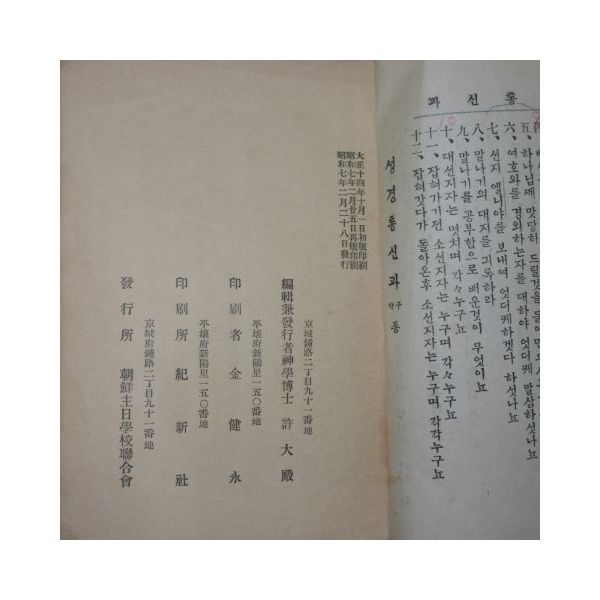 과 신 통
五、하나님께 맛당히 드릴것을
六、여호와를 경외하는자를 대하야 엇더케 말삼하섯나뇨
七、선지 엘니야를 보내여 엇더케하겟다 하섯나뇨
八、말나기의 대지를 긔록하라
九、말나기를 공부함으로 배운것이 무엇이뇨
十、대선지자는 몃치며 각々누구뇨
十一、잡혀가기전 소선지자는 누구며 각々누구뇨
十二、잡혀갓다가 돌아온후 소선지자는 누구며 각각누구뇨
성경통신과 구약 종
大正十四年十月一日初版印刷
昭和七年二月廿五日再版印刷
昭和七年二月二十八日發行
京城府鍾路二丁目九十一番地
編輯兼發行者神學博士 許大殿
平壤府新陽里一五〇番地
印刷者 金健永
平壤府新陽里一五〇番地
印刷所 紀新社
京城府鍾路二丁目九十一番地
發行所 朝鮮主日學校聯合會